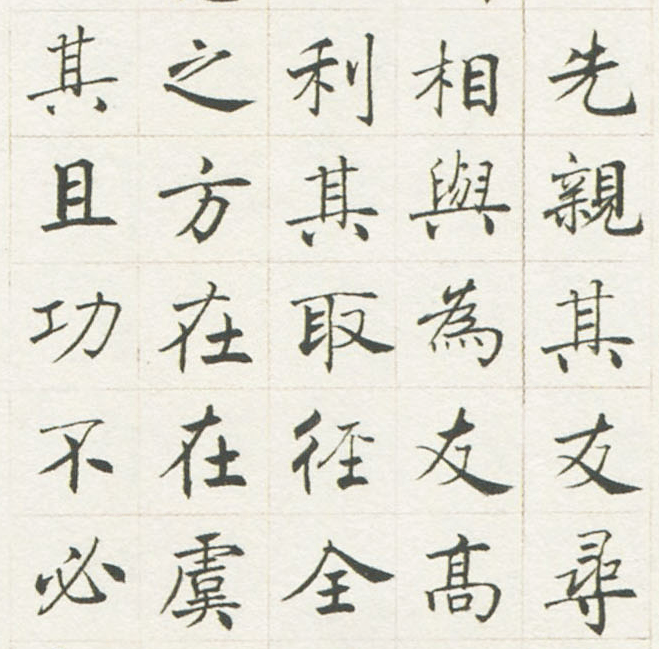 先親其友尋
相與為友高
利其取徑全
之方在在虞
其且功不必